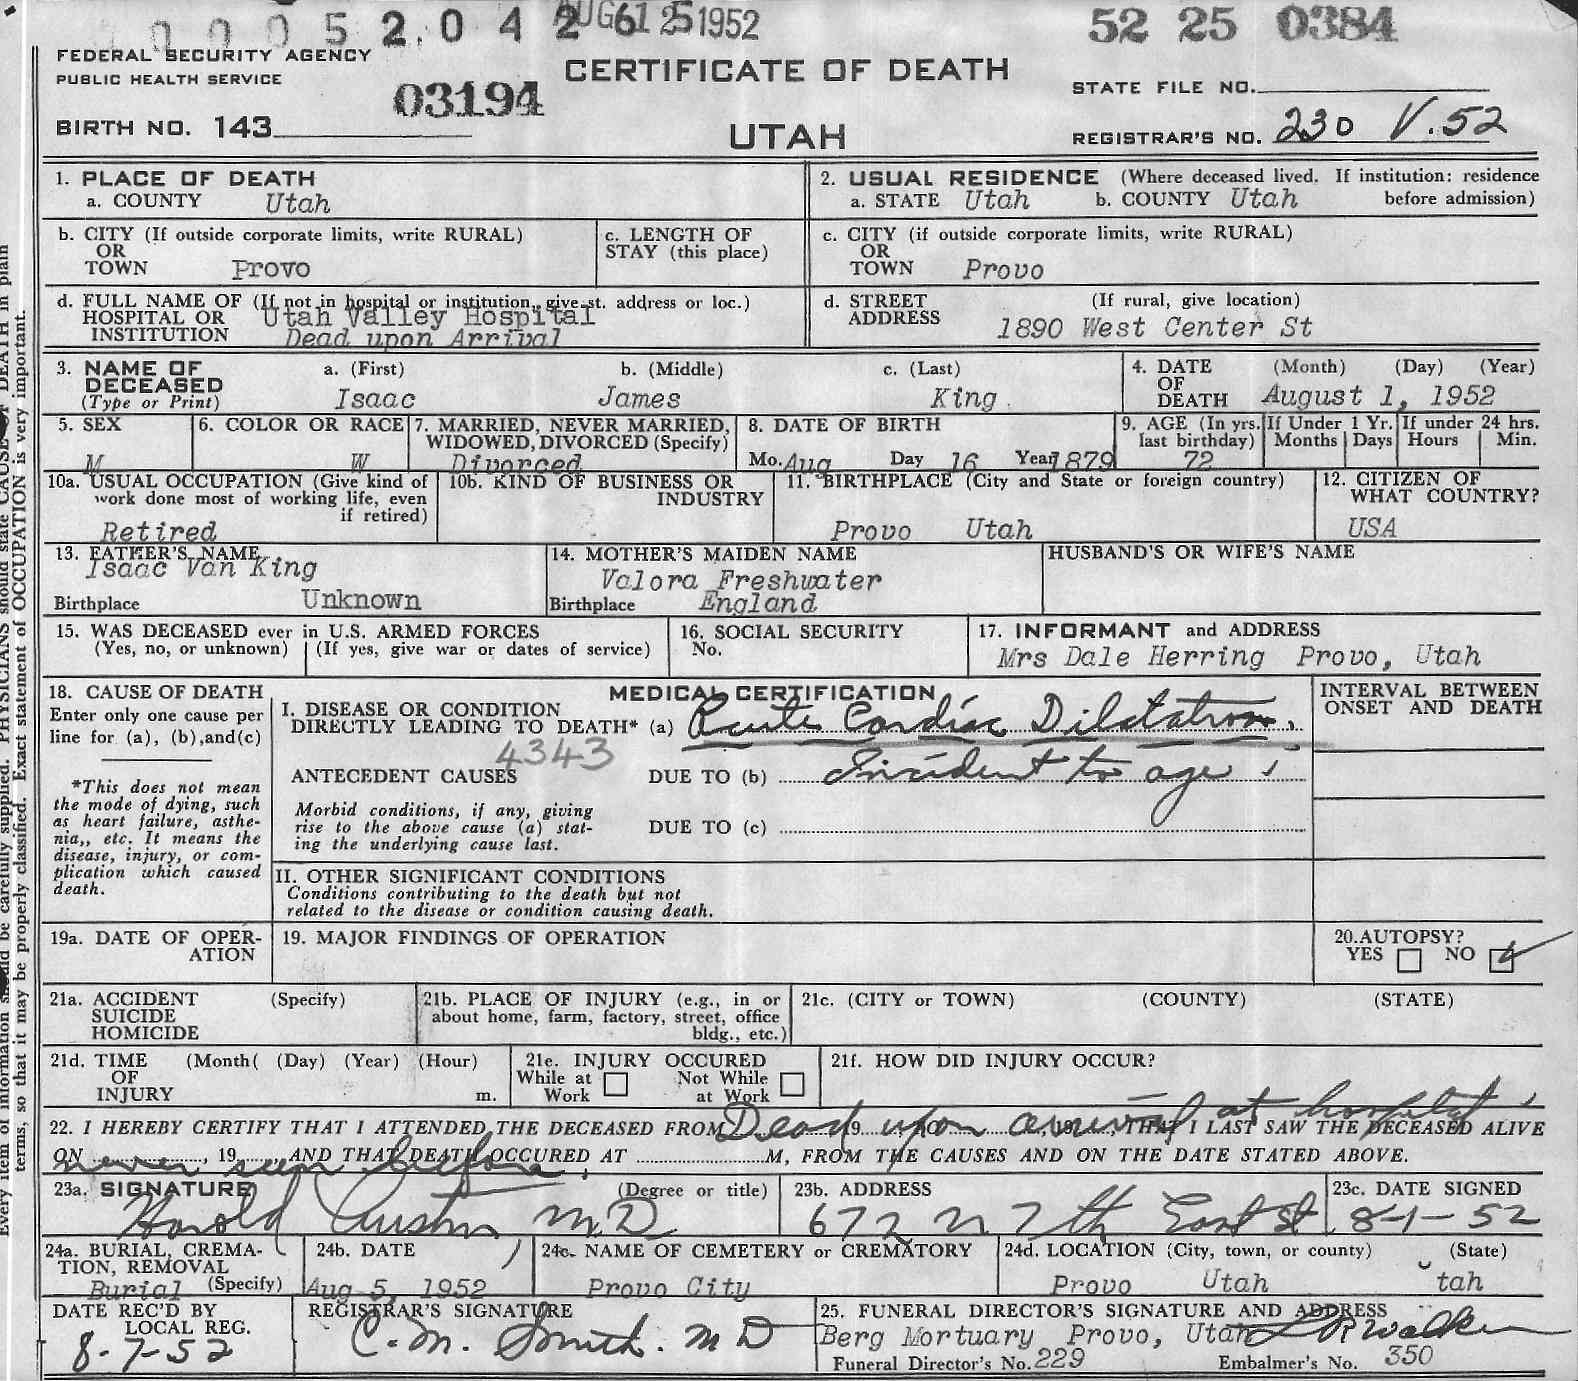 0005 2.042 AUG 61 25 1952 52 25 0384
FEDERAL SECURITY AGENCY
PUBLIC HEALTH SERVICE
03194
CERTIFICATE OF DEATH
STATE FILE NO.
BIRTH NO. 143
UTAH
REGISTRAR'S NO. 230 V.52
1. PLACE OF DEATH
a. COUNTY Utah
2. USUAL RESIDENCE (Where deceased lived. If institution: residence
a. STATE Utah b. COUNTY Utah before admission)
b. CITY (If outside corporate limits, write RURAL)
OR
TOWN Provo
c. LENGTH OF
STAY (this place)
c. CITY (if outside corporate limits, write RURAL)
OR
TOWN Provo
d. FULL NAME OF (If not in hospital or institution, give st. address or loc.)
HOSPITAL OR Utah Valley Hospital
INSTITUTION Dead upon Arrival
d. STREET (If rural, give location)
ADDRESS 1890 West Center St
3. NAME OF a. (First) b. (Middle) c. (Last)
DECEASED
(Type or Print) Isaac James King
4. DATE (Month) (Day) (Year)
OF
DEATH August 1, 1952
5. SEX
M
6. COLOR OR RACE
W
7. MARRIED, NEVER MARRIED,
WIDOWED, DIVORCED (Specify)
Divorced
8. DATE OF BIRTH
Mo. Aug Day 16 Year 1879
9. AGE (In yrs.
last birthday)
72
If Under 1 Yr.
Months Days
If under 24 hrs.
Hours Min.
10a. USUAL OCCUPATION (Give kind of
work done most of working life, even
if retired)
Retired
10b. KIND OF BUSINESS OR
INDUSTRY
11. BIRTHPLACE (City and State or foreign country)
Provo Utah
12. CITIZEN OF
WHAT COUNTRY?
USA
13. FATHER'S NAME
Isaac Van King
Birthplace Unknown
14. MOTHER'S MAIDEN NAME
Valora Freshwater
Birthplace England
HUSBAND'S OR WIFE'S NAME
15. WAS DECEASED ever in U.S. ARMED FORCES
(Yes, no, or unknown) (If yes, give war or dates of service)
16. SOCIAL SECURITY
No.
17. INFORMANT and ADDRESS
Mrs Dale Herring Provo, Utah
18. CAUSE OF DEATH
Enter only one cause per
line for (a), (b),and(c)
*This does not mean
the mode of dying, such
as heart failure, asthe-
nia,, etc. It means the
disease, injury, or com-
plication which caused
death.
MEDICAL CERTIFICATION
I. DISEASE OR CONDITION
DIRECTLY LEADING TO DEATH* (a) Acute Cardiac Dilatation.
4343
ANTECEDENT CAUSES DUE TO (b) Incident to age
Morbid conditions, if any, giving
rise to the above cause (a) stat-
ing the underlying cause last.
DUE TO (c)
INTERVAL BETWEEN
ONSET AND DEATH
II. OTHER SIGNIFICANT CONDITIONS
Conditions contributing to the death but not
related to the disease or condition causing death.
19a. DATE OF OPER-
ATION
19. MAJOR FINDINGS OF OPERATION
20.AUTOPSY?
YES NO
21a. ACCIDENT (Specify)
SUICIDE
HOMICIDE
21b. PLACE OF INJURY (e.g., in or
about home, farm, factory, street, office
bldg., etc.)
21c. (CITY or TOWN) (COUNTY) (STATE)
21d. TIME (Month( (Day) (Year) (Hour)
OF
INJURY m.
21e. INJURY OCCURED
While at Not While
Work at Work
21f. HOW DID INJURY OCCUR?
Dead upon arrival at hospital
22. I HEREBY CERTIFY THAT I ATTENDED THE DECEASED FROM 19 TO 19 , THAT I LAST SAW THE DECEASED ALIVE
never seen before
ON , 19 AND THAT DEATH OCCURED AT M, FROM THE CAUSES AND ON THE DATE STATED ABOVE.
23a. SIGNATURE (Degree or title)
Harold Austin M.D
23b. ADDRESS
672 N 7th East St
23c. DATE SIGNED
8-1-52
24a. BURIAL, CREMA-
TION, REMOVAL
Burial (Specify)
24b. DATE
Aug 5, 1952
24c. NAME OF CEMETERY or CREMATORY
Provo City
24d. LOCATION (City, town, or county) (State)
Provo Utah Utah
DATE REC'D BY
LOCAL REG.
8-7-52
REGISTRAR'S SIGNATURE
C.M. Smith. MD
25. FUNERAL DIRECTOR'S SIGNATURE AND ADDRESS
Berg Mortuary Provo, Utah Walker
Funeral Director's No. 229 Embalmer's No. 350
Every item of information should be carefully supplied. PHYSICIANS should state CAUSE OF DEATH in plain
terms, so that it may be properly classified. Exact statement of OCCUPATION is very important.